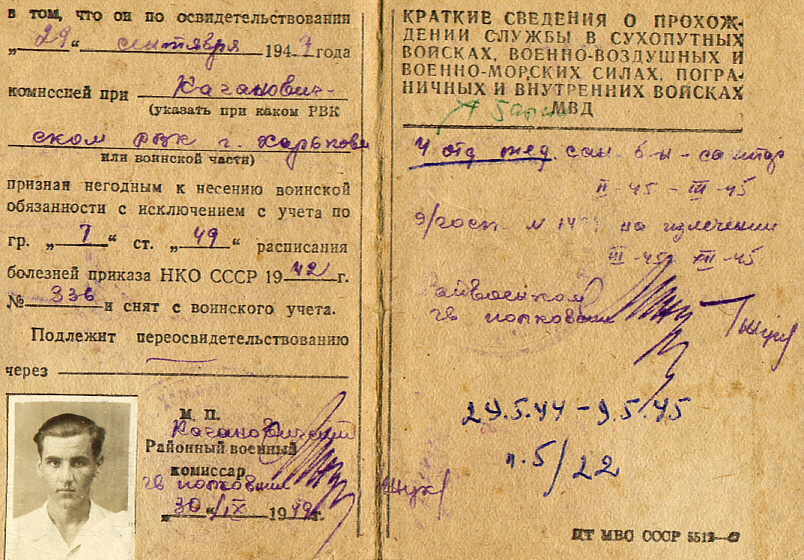 в том, что он по освидетельствовании
„29“ сентября 1947 года
комиссией при Каганович-
(указать при каком РВК
ском РВК г. Харькова
или воинской части)
признан негодным к несению воинской
обязанности с исключением с учета по
гр. „7“ ст. „49“ расписания
болезней приказа НКО СССР 1942 г.
№ 336 и снят с воинского учета.
Подлежит переосвидетельствованию
через
М. П.
Кагановичский
Районный военный
комиссар
гв полковник
„30“ IX 194 г.
КРАТКИЕ СВЕДЕНИЯ О ПРОХОЖ-
ДЕНИИ СЛУЖБЫ В СУХОПУТНЫХ
ВОЙСКАХ, ВОЕННО-ВОЗДУШНЫХ И
ВОЕННО-МОРСКИХ СИЛАХ, ПОГРА-
НИЧНЫХ И ВНУТРЕННИХ ВОЙСКАХ
МВД
4 отд мед. сан. б-н - санитар
II-45 - III-45
э/госп. № на излечении
III-45 XII-45
Райвоенком
гв полковник
29.5.44 - 9.5.45
п.5/22
ЦТ МВС СССР 5512—